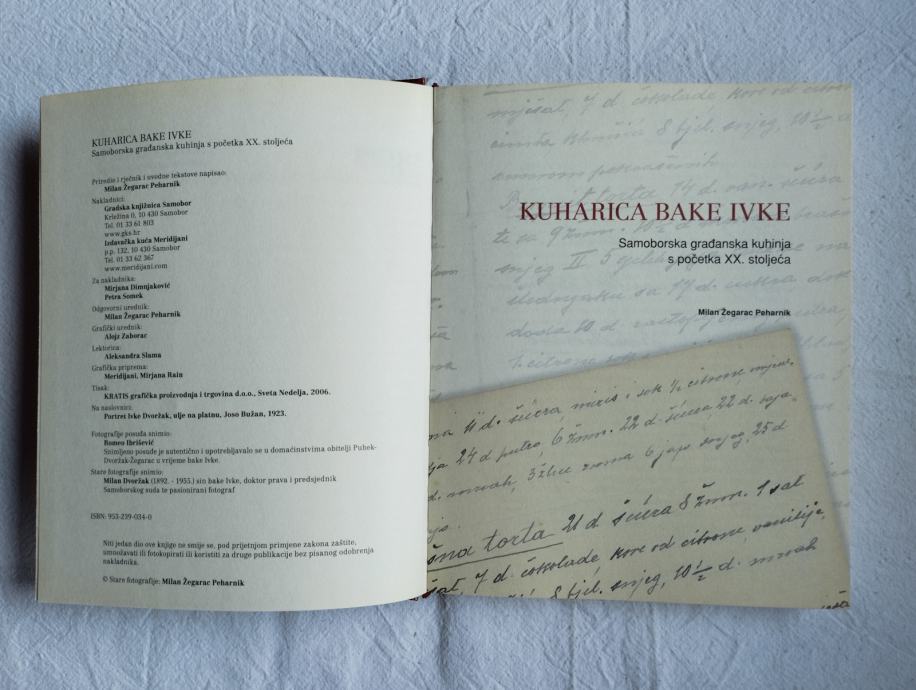 KUHARICA BAKE IVKE
Samoborska građanska kuhinja s početka XX. stoljeća
Priredio i rječnik i uvodne tekstove napisao:
Milan Žegarac Peharnik
Nakladnici:
Gradska knjižnica Samobor
Krležina 0, 10 430 Samobor
Tel. 01 33 61 803
www.gks.hr
Izdavačka kuća Meridijani
p.p. 132, 10 430 Samobor
Tel. 01 33 62 367
www.meridijani.com
Za nakladnika:
Mirjana Dimnjaković
Petra Somek
Odgovorni urednik:
Milan Žegarac Peharnik
Grafički urednik:
Alojz Zaborac
Lektorica:
Aleksandra Slama
Grafička priprema:
Meridijani, Mirjana Rain
Tisak:
KRATIS grafička proizvodnja i trgovina d.o.o., Sveta Nedelja, 2006.
Na naslovnici:
Portret Ivke Dvoržak, ulje na platnu, Joso Bužan, 1923.
Fotografije posuđa snimio:
Romeo Ibrišević
Snimljeno posuđe je autentično i upotrebljavalo se u domaćinstvima obitelji Puhek-
Dvoržak-Žegarac u vrijeme bake Ivke.
Stare fotografije snimio:
Milan Dvoržak (1892. - 1955.) sin bake Ivke, doktor prava i predsjednik
Samoborskog suda te pasionirani fotograf
ISBN: 953-239-034-0
Niti jedan dio ove knjige ne smije se, pod prijetnjom primjene zakona zaštite,
umnožavati ili fotokopirati ili koristiti za druge publikacije bez pisanog odobrenja
nakladnika.
© Stare fotografije: Milan Žegarac Peharnik
KUHARICA BAKE IVKE
Samoborska građanska kuhinja
s početka XX. stoljeća
Milan Žegarac Peharnik
4 d. šećera, miris i sok ½ citrone,
24 d putra, 6 žmn. 22 d. šećera 22 d.
d. mrvah, 3 žlice ruma 6 jaja snjeg, 25 d
torta 21 d šećera 8 žmn. 1 sat
7 d. čokolade, kore od citrone, vanilije,
8 bjel. snjeg, 10½ d. mrvah